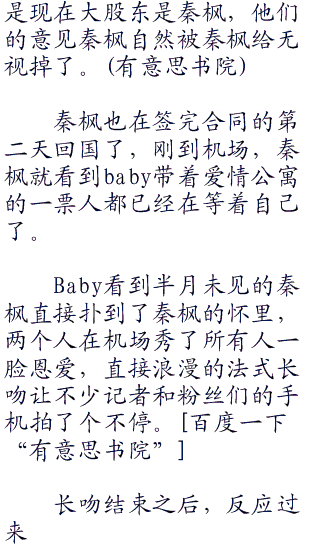 是现在大股东是秦枫，他们
的意见秦枫自然被秦枫给无
视掉了。(有意思书院)
秦枫也在签完合同的第
二天回国了，刚到机场，秦
枫就看到baby带着爱情公寓
的一票人都已经在等着自己
了。
Baby看到半月未见的秦
枫直接扑到了秦枫的怀里，
两个人在机场秀了所有人一
脸恩爱，直接浪漫的法式长
吻让不少记者和粉丝们的手
机拍了个不停。[百度一下
“有意思书院”]
长吻结束之后，反应过
来